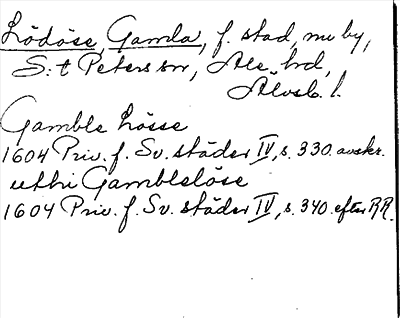 Lödöse, Gamla, f. stad, nu by,
S:t Peters sn, Ale hrd,
Älvsb. l.
Gamble Lösse
1604 Priv. f. Sv. städer IV, s. 330. avskr.
uthi Gambleløse
1604 Priv. f. Sv. städer IV, s. 340. efter RR.